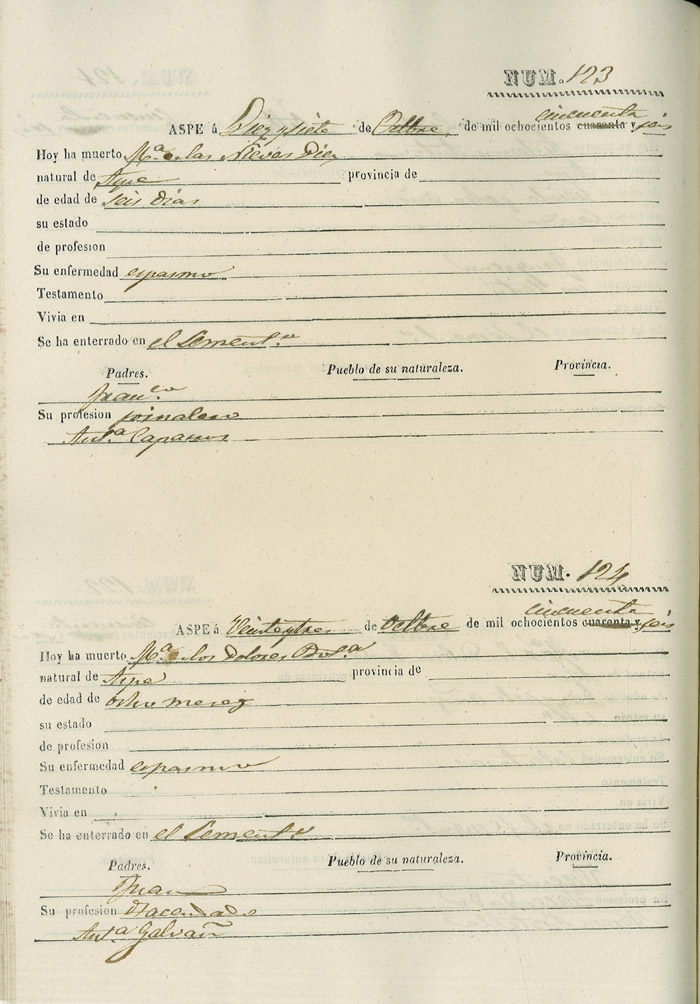 NUM. 123
cincuenta
ASPE á Diezysiete de Octbre. de mil ochocientos cuaranta y seis
Hoy ha muerto Mª. de las Nieves Diez
natural de Aspe provincia de
de edad de seis dias
su estado
de profesion
Su enfermedad espasmo
Testamento
Vivia en
Se ha enterrado en el Sement.º
Padres. Pueblo de su naturaleza. Provincia.
Fran.co
Su profesion jornalero
Ant.ª Caparros
NUM. 124
cincuenta
ASPE á Veinteytres de Octbre de mil ochocientos cuaranta y seis
Hoy ha muerto Mª. de los Dolores
natural de Aspe provincia de
de edad de ocho meses
su estado
de profesion
Su enfermedad espasmo
Testamento
Vivia en
Se ha enterrado en el Sement.º
Padres. Pueblo de su naturaleza. Provincia.
Juan
Su profesion Hacendado
Ant.ª Galvañ